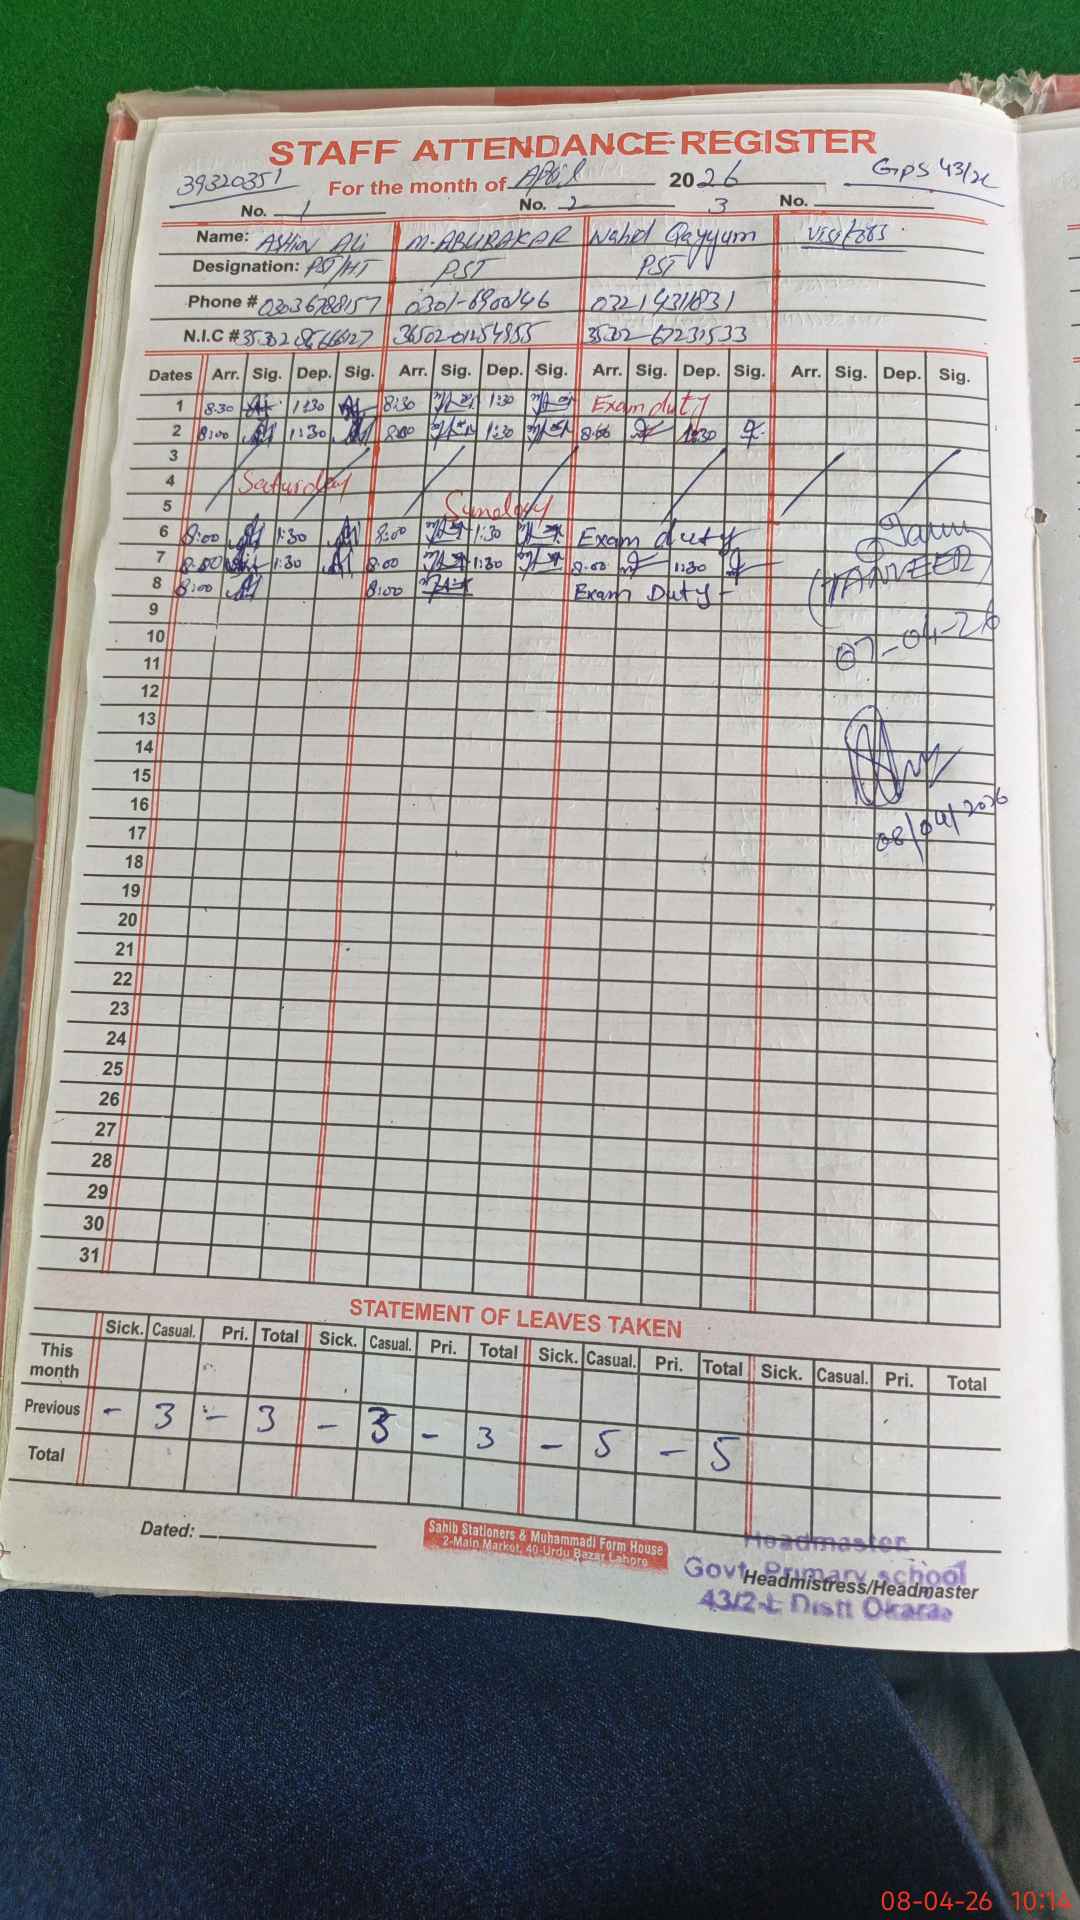 STAFF ATTENDANCE REGISTER
39320351 For the month of April 2026 GPS 43/2L
No. 1 No. 2 3 No.
Name: ASHIQ ALi M.ABUBAKAR Nahid Qayyum VISITORS
Designation: PST/HT PST PST
Phone # 03036788157 0301-6900146 03214311831
N.I.C #
Dates Arr. Sig. Dep. Sig. Arr. Sig. Dep. Sig. Arr. Sig. Dep. Sig. Arr. Sig. Dep. Sig.
1 8:30 1:30 8:30 1:30 Exam duty
2 8:00 1:30 8:00 1:30 8:00 1:30
3
4 Saturday
5 Sunday
6 8:00 1:30 8:00 1:30 Exam duty
7 8:00 1:30 8:00 1:30 8:00 1:30
(TANVEER)
8 8:00 8:00 Exam Duty-
9
07-04-26
10
11
12
13
14
15
16
08/04/2026
17
18
19
20
21
22
23
24
25
26
27
28
29
30
31
STATEMENT OF LEAVES TAKEN
Sick. Casual. Pri. Total Sick. Casual. Pri. Total Sick. Casual. Pri. Total Sick. Casual. Pri. Total
This month
Previous - 3 - 3 - 3 - 3 - 5 - 5
Total
Dated:
Sahib Stationers & Muhammadi Form House
2-Main Market, 40-Urdu Bazar Lahore
Headmaster
Govt. Primary school
Headmistress/Headmaster
43/2-L Distt Okara
08-04-26 10:14